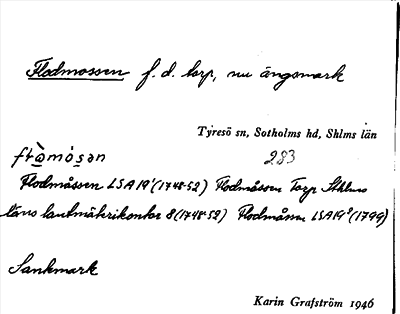 Flodmossen f. d. torp, nu ängsmark
Tyresö sn, Sotholms hd, Shlms län
283
Flodmåssen LSA 19¹(1748-52) Flodmåssen Torp Sthlms
läns lantmäterikontor 8(1748-52) Flodmåsen LSA 19²(1799)
Sankmark
Karin Grafström 1946